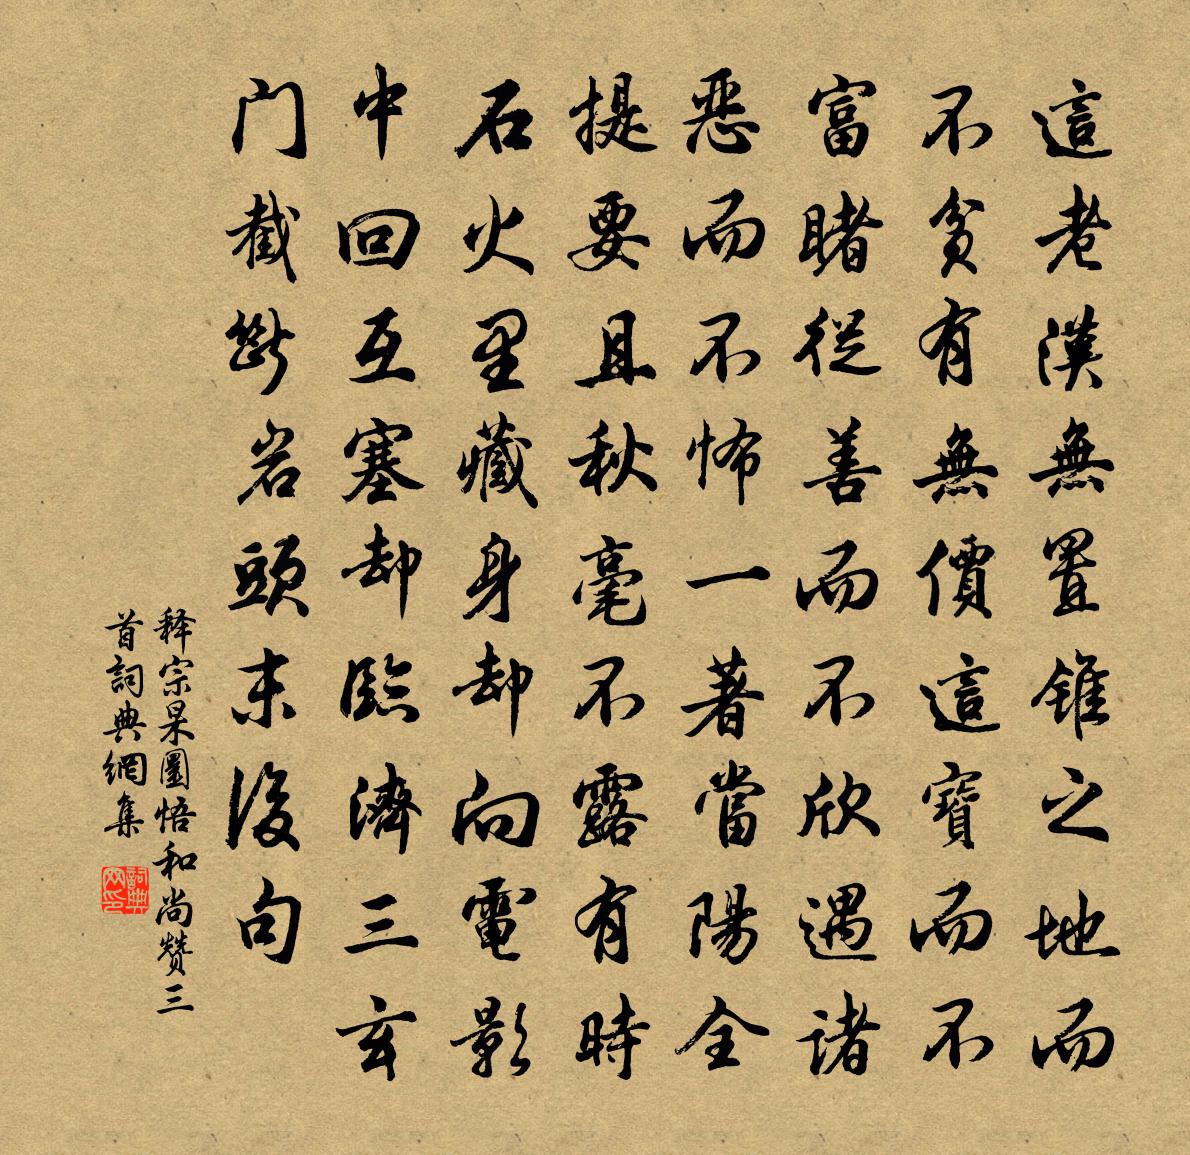 這老漢無置錐之地而
不貧有無價這寶而不
富睹從善而不欣遇諸
惡而不怖一著當陽全
提要且秋毫不露有時
石火里藏身却向電影
中回互塞却臨濟三玄
门截斷岩頭末後句
释宗杲圜悟和尚贊三
首詞典網集
詞典
网印